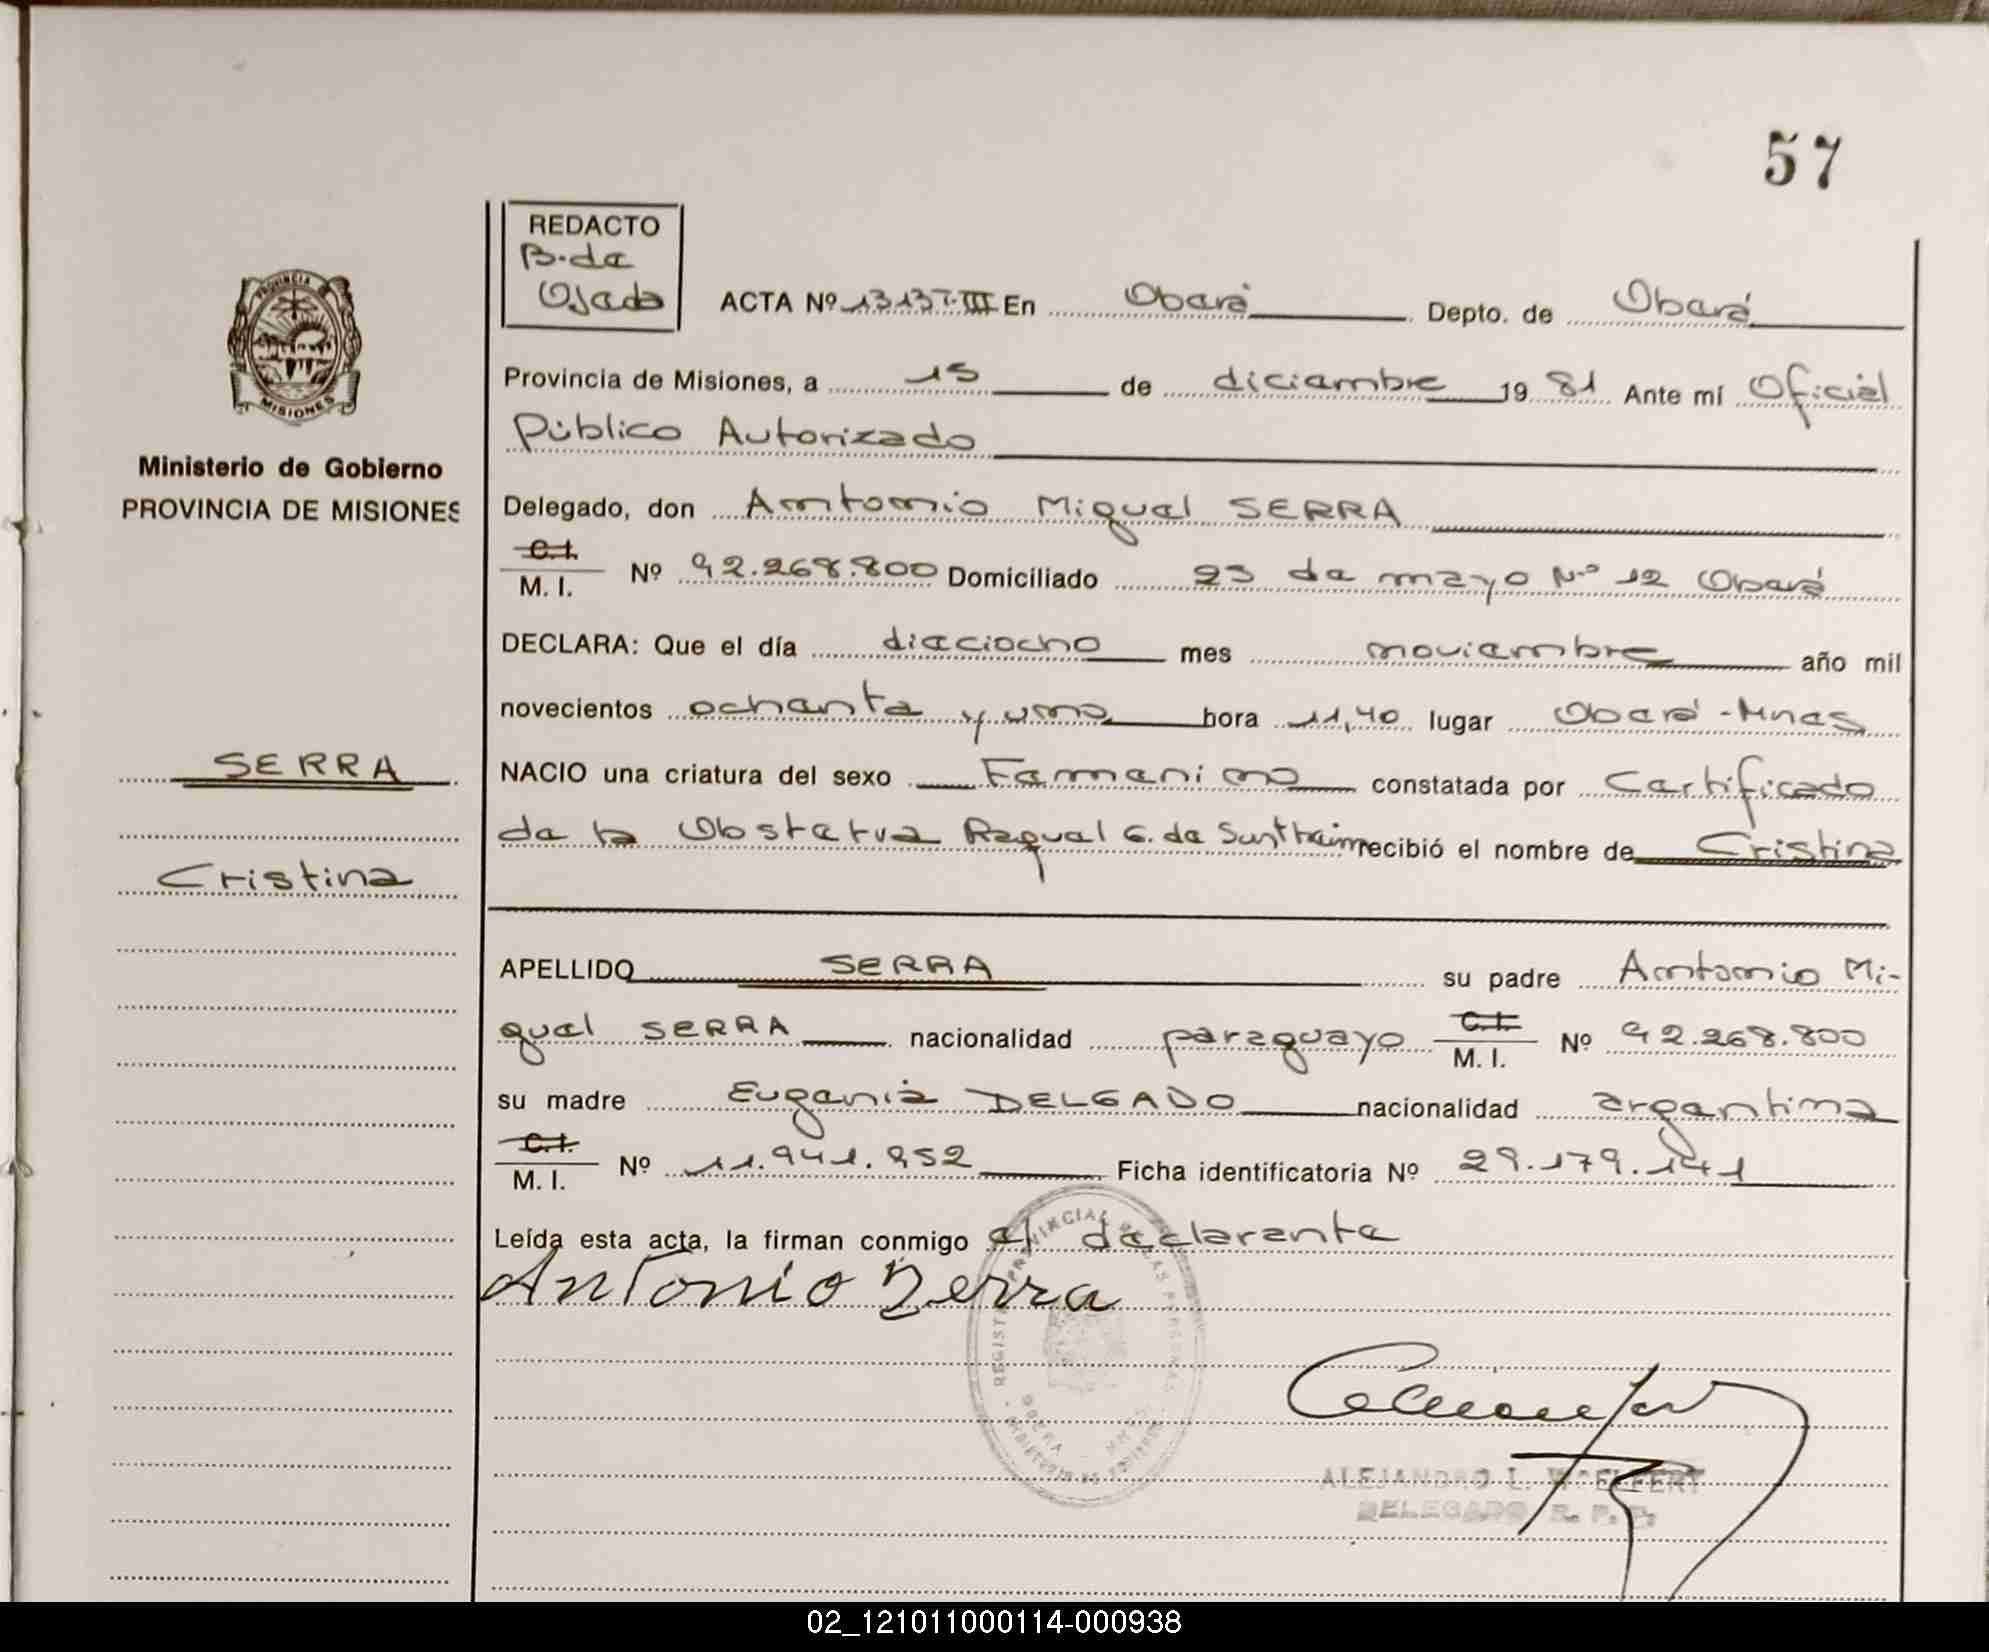 57
REDACTO
B. de
Ojeda
ACTA Nº 13137.III En Oberá Depto. de Oberá
PROVINCIA
MISIONES
Provincia de Misiones, a 15 de diciembre 1981 Ante mí Oficial
Público Autorizado
Ministerio de Gobierno
PROVINCIA DE MISIONES
Delegado, don Antonio Miguel SERRA
C.I.
M. I. Nº 92.268.800 Domiciliado 25 de mayo N.º 12 Oberá
DECLARA: Que el día dieciocho mes noviembre año mil
novecientos ochenta y uno hora 11,40 lugar Oberá - Mnes
SERRA
NACIO una criatura del sexo Femenino constatada por Certificado
de la Obstetra Raquel G. de recibió el nombre de Cristina
Cristina
APELLIDO SERRA su padre Antonio Mi-
guel SERRA nacionalidad paraguayo C.I. M. I. Nº 92.268.800
su madre Eugenia DELGADO nacionalidad argentina
C.I.
M. I. Nº 11.941.952 Ficha identificatoria Nº 29.179.141
Leída esta acta, la firman conmigo el declarante
Antonio Serra
REGISTRO PROVINCIAL DE LAS PERSONAS
OBERA
ALEJANDRO L. WOELFERT
DELEGADO R. P. P.
02_121011000114-000938